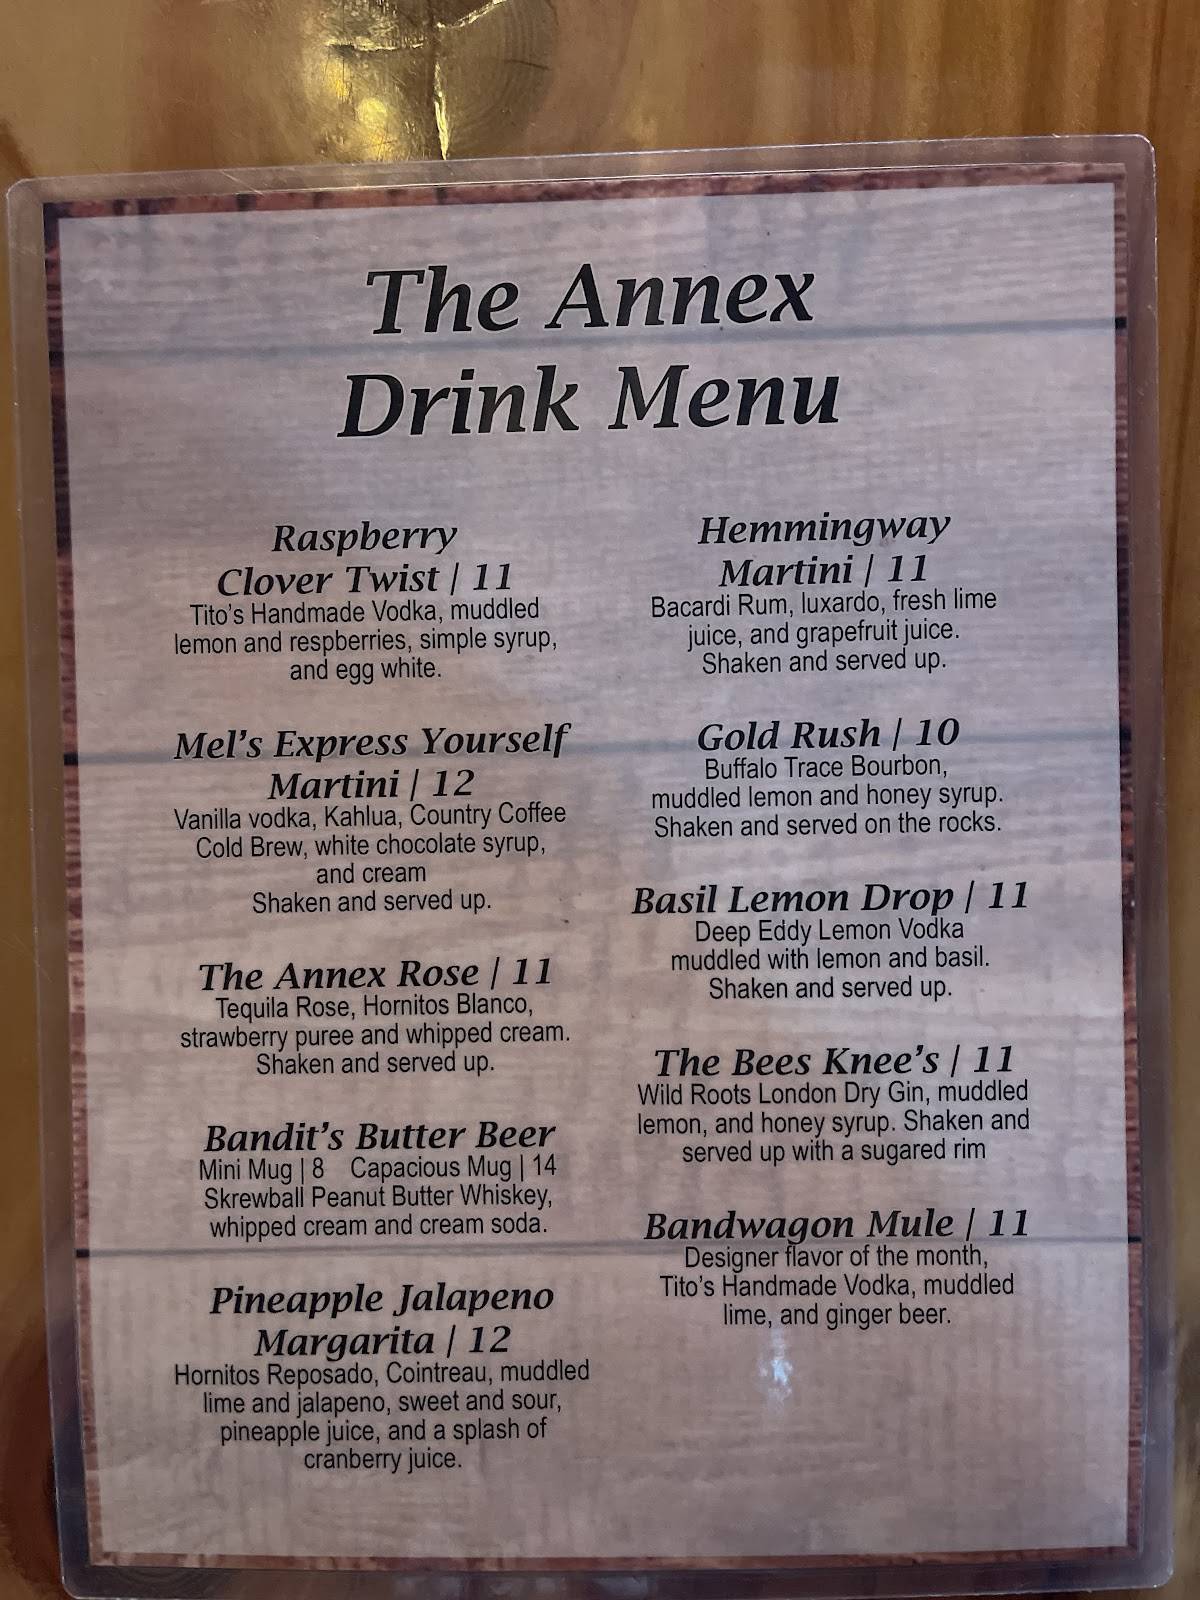 The Annex
Drink Menu
Raspberry
Clover Twist | 11
Tito's Handmade Vodka, muddled
lemon and respberries, simple syrup,
and egg white.
Mel's Express Yourself
Martini | 12
Vanilla vodka, Kahlua, Country Coffee
Cold Brew, white chocolate syrup,
and cream
Shaken and served up.
The Annex Rose | 11
Tequila Rose, Hornitos Blanco,
strawberry puree and whipped cream.
Shaken and served up.
Bandit's Butter Beer
Mini Mug | 8 Capacious Mug | 14
Skrewball Peanut Butter Whiskey,
whipped cream and cream soda.
Pineapple Jalapeno
Margarita | 12
Hornitos Reposado, Cointreau, muddled
lime and jalapeno, sweet and sour,
pineapple juice, and a splash of
cranberry juice.
Hemmingway
Martini | 11
Bacardi Rum, luxardo, fresh lime
juice, and grapefruit juice.
Shaken and served up.
Gold Rush | 10
Buffalo Trace Bourbon,
muddled lemon and honey syrup.
Shaken and served on the rocks.
Basil Lemon Drop | 11
Deep Eddy Lemon Vodka
muddled with lemon and basil.
Shaken and served up.
The Bees Knee's | 11
Wild Roots London Dry Gin, muddled
lemon, and honey syrup. Shaken and
served up with a sugared rim
Bandwagon Mule | 11
Designer flavor of the month,
Tito's Handmade Vodka, muddled
lime, and ginger beer.